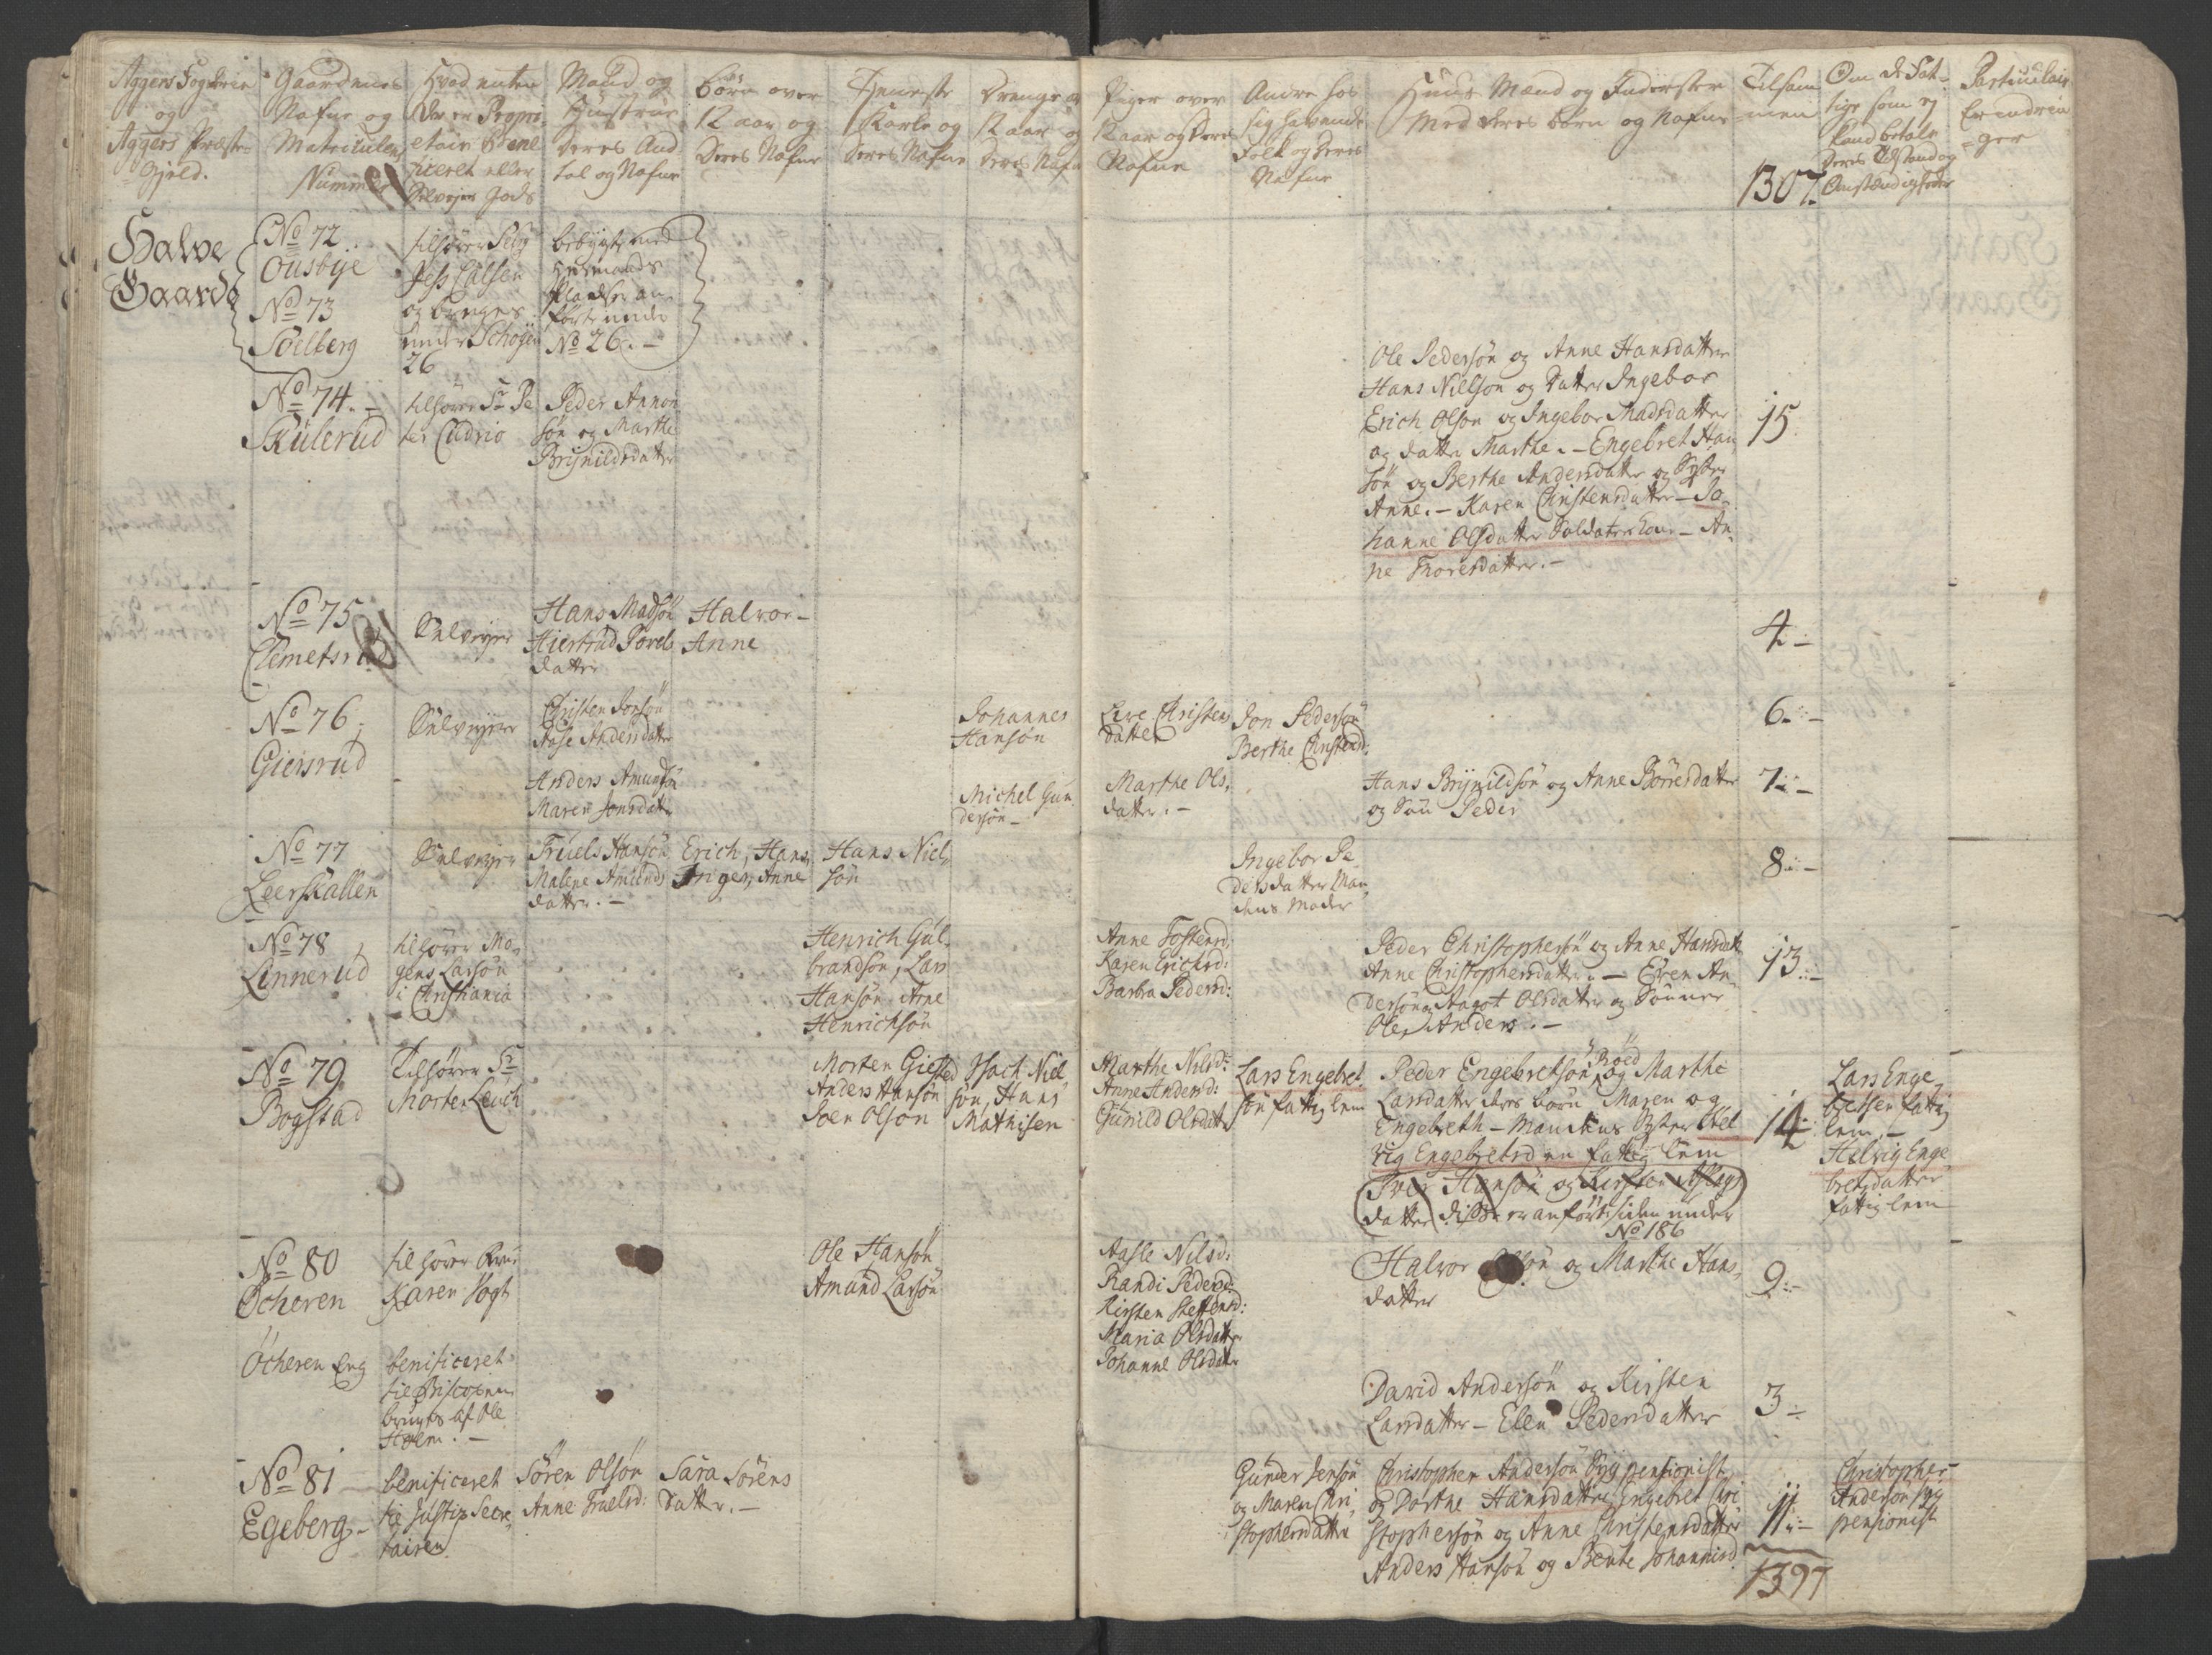 Aggers Fogderie
og
Aggers Præste-
Gjeld.
Gaardenes
Nafne og
Matriculens
Nummer
Hvad enten
de er Propri
etair Bene
ficeret eller
Selvejer Gods
Mand og
Hustrue
Deres An
tal og Nafne
børn over
12 aar og
Deres Nafne
Tjeneste
Karle og
Deres Nafne
Drenge o
12 aar og
Deres Nafn
Piger over
12 aar og Deres
Nafne
Andre hos
sig havende
Folk og Deres
Nafne
Huus Mænd og Inderster
Med deres børn og Nafne
Tilsam
men
1307.
Om de Fat-
tige som ej
kand betale
Deres Tilstand og
Omstændigheder
Particulair
Erindrin
ger
Halve
Gaarde
No 72
Ousbye
No 73
Soelberg
tilhører
Jess Calsen
og bruges
under Schøyen
26
bebygt med
Huusmands
Pladser an
ført under
No 26. -
No 74. -
Skulerud
tilhører Sr Pe
ter Cudrio
Peder Annon
søn og Marthe
Brynildsdatter
Ole Pedersøn og Anne Hansdatter
Hans Nielsøn og Datter Ingebor
Erich Olsøn og Ingebor Madsdatter
og datter Marthe. - Engebret Han
søn og Berthe Andersdatter og Syster
Anne. - Karen Christensdatter - Jo-
hanne Olsdatter Soldaterkone - An
ne Thoresdatter. -
15
No 75
Clemetsrud
Selveyer
Hans Madsøn
Hiertrud Povels
datter
Halvor -
Anne
4 -
No 76
Giersrud
Selveyer
Christen Jonsøn
Aase Andersdatter
Johannes
Hansøn
Live Christens
datter
Jon Pedersøn
Berthe Christensd:
6 -
Anders Amundsøn
Maren Jonsdatter
Michel Gun
dersøn -
Marthe Ols,
datter. -
Hans Brynildsøn og Anne Børresdatter
og Søn Peder
7 -
No 77
Leerskallen
Selveyer
Truels Hansøn
Malene Amunds
datter. -
Erich, Hans,
Inger, Anne
Hans Niel,
søn
Ingebor Pe
dersdatter Man
dens Moder
8 -
No 78
Linnerud
tilhører Mo
gens Larsøn
i Christiania
Henrich Gul
brandsøn, Lars
Hansøn Arne
Henrichsøn
Anne Tostensd:
Karen Erichsd:
Barbra Pedersd:
Peder Christophersøn og Anne Hansdatt
Anne Christophersdatter - Even An
dersøn og Aagot Olsdatter og Sønner
Ole, Anders. -
13 -
No 79
Bogstad
Tilhører Sr
Morten Leuch
Morten Giested
Anders Hansøn
Soen Olsøn
Isach Niel
søn, Hans
Mathisen
Marthe Nilsd:
Anne Andersd:
Gunild Olsdatt
Lars Engebret,
søn fattig lem
Peder Engebretsøn Røed og Marthe
Larsdatter deres børn Maren og
Engebreth - Mandens Syster Hel
vig Engebretsd en fattig lem
(Iver Hansøn og Kirsten Aslags
datter) disse er anført siden under
No 186
14
Lars Enge,
bretsen fattig
lem. -
Helvig Enge
bretsdatter
fattig lem
No 80
Ócheren
tilhører
Karen Vogt
Ole Hansøn
Amund Larsøn
Aasle Nilsd:
Randi Pedersd:
Kirsten Steffensd:
Maria Olsdatter
Johanne Olsdatter
Halvor Olsøn og Marthe Hans,
datter
9 -
Ócheren Eng
benificeret
til Biscopen
bruges af Ole
Holm. -
David Andersøn og Kirsten
Larsdatter - Elen Pedersdatter
3 -
No 81
Egeberg -
benificeret
til Justiz Secre,
tairen
Søren Olsøn
Anne Truelsd:
Sara Sørens
datter. -
Gunder Jensøn
og Maren Chri
stophersdatter
Christopher Andersøn Syg pensionist
og Dorthe Hansdatter Engebret Chri
stophersøn og Anne Christensdatter
Anders Hansøn og Bente Johannisd
11 -
Christopher
Andersøn Syg
pensionist
1397